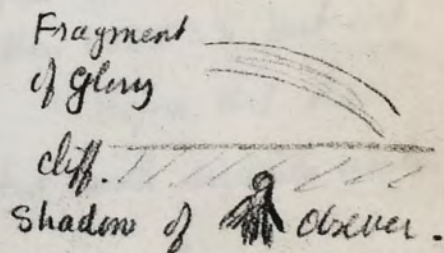 Fragment
of Glory
cliff.
Shadow of observer.